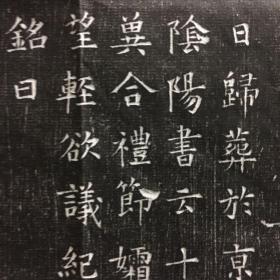 日歸葬於京
陰陽書云十
冀合禮節孀
望輕欲議紀
銘曰